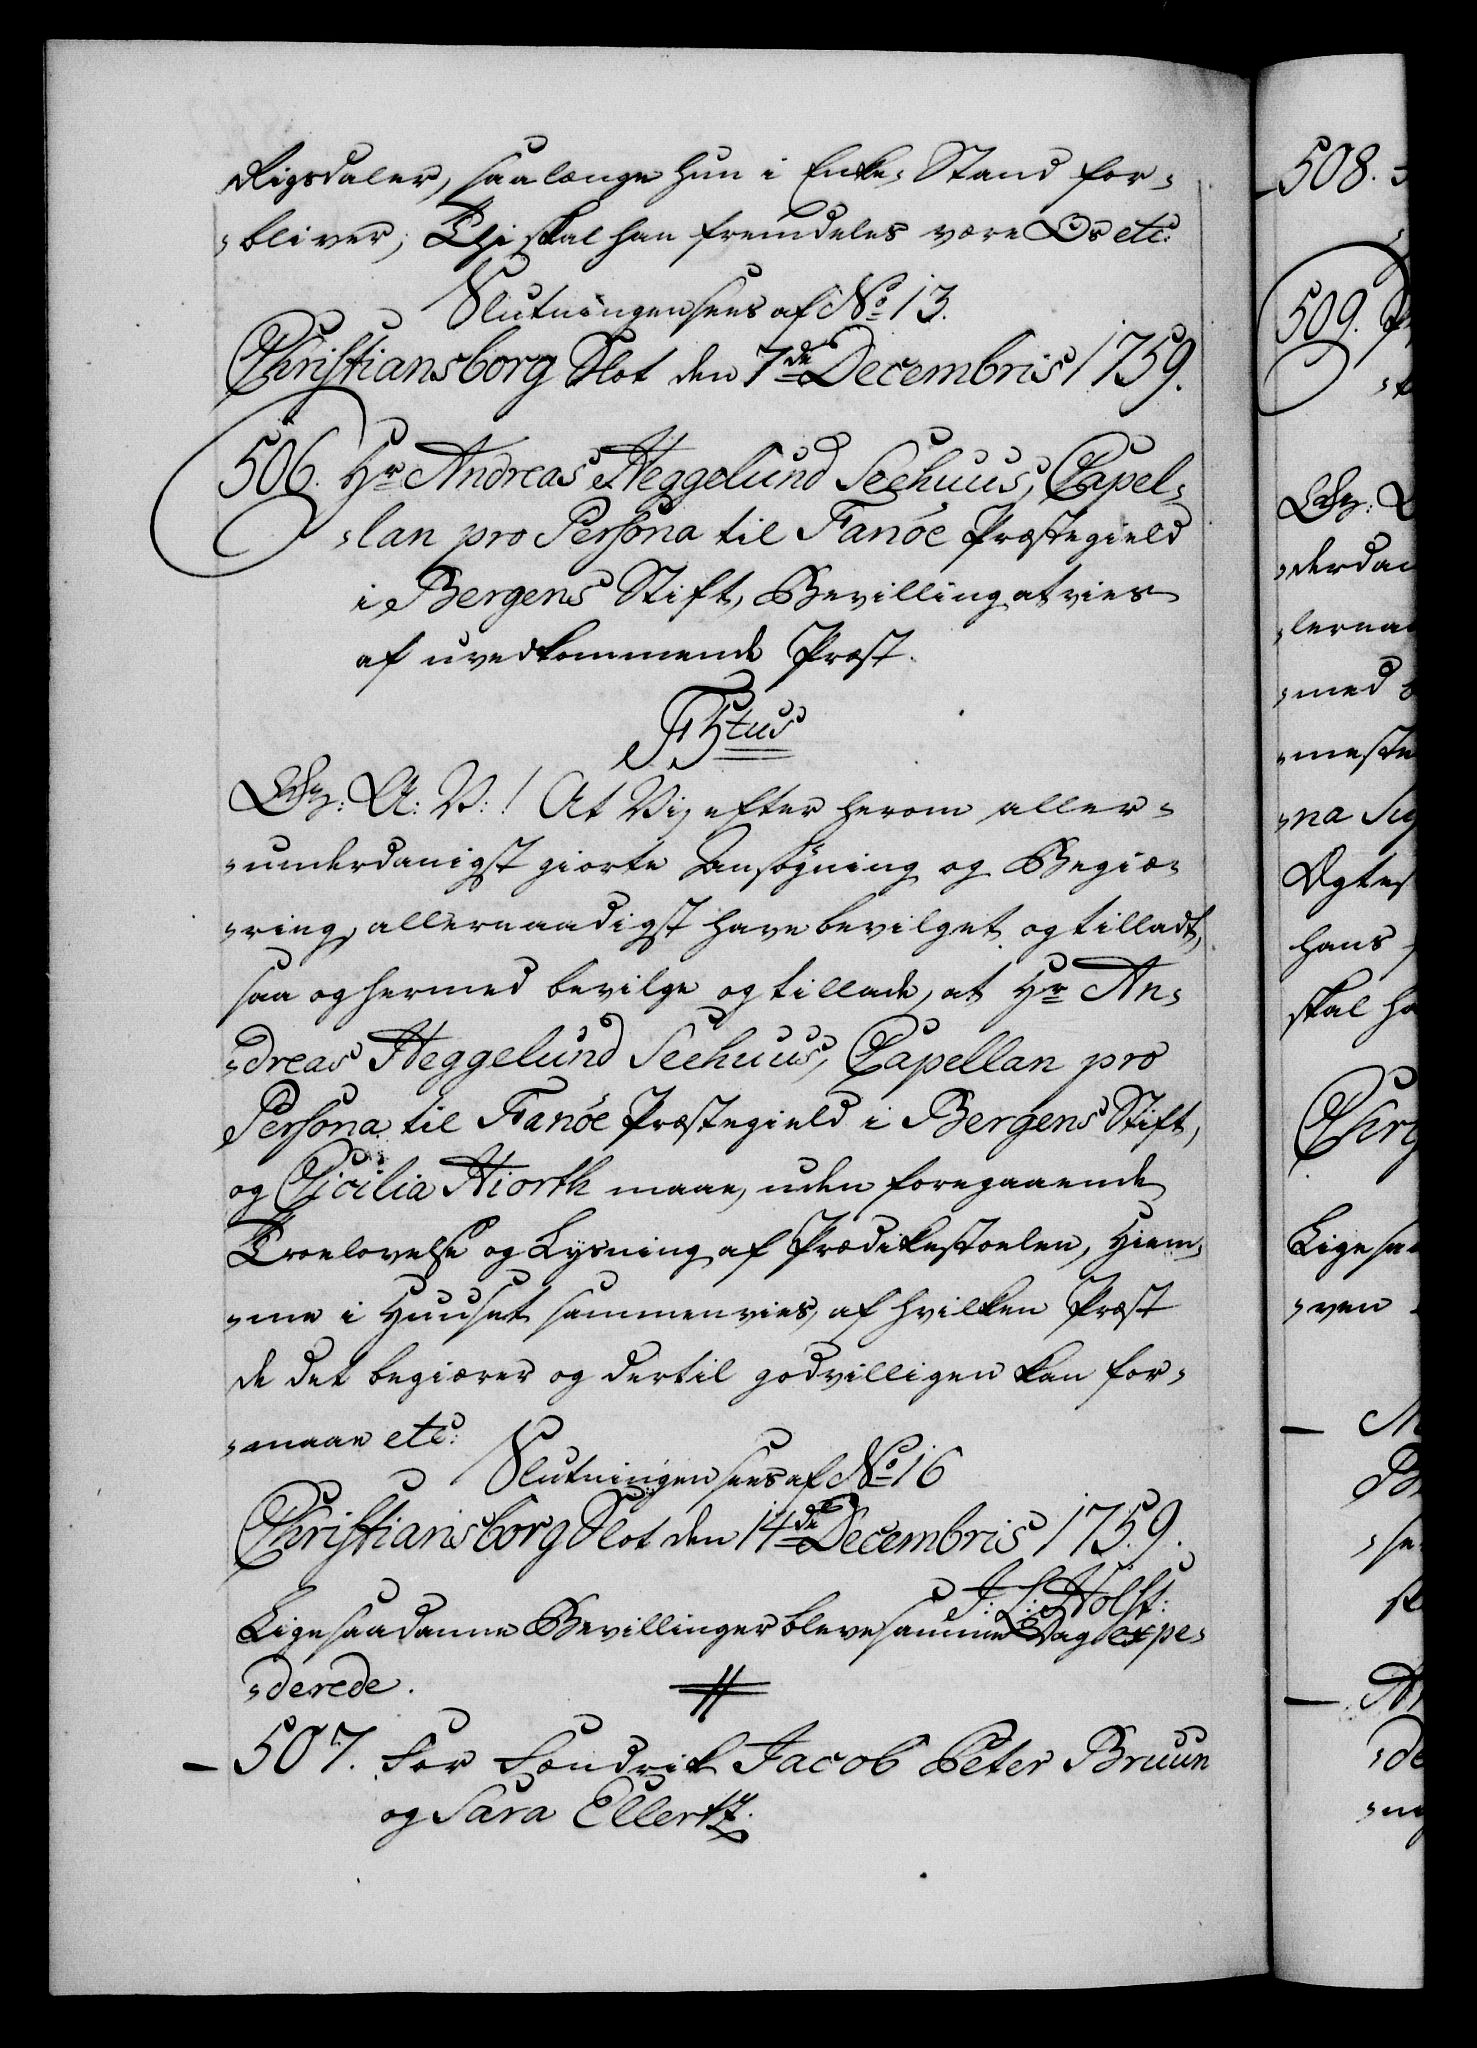 Rigsdaler, saalænge hun i Enke-Stand for-
-bliver; Thi skal han fremdeles være Os etc:
Slutningen sees af No 13.
Christiansborg Slot den 7de Decembris 1759.
506. Hr Andreas Heggelund Seehuus, Capel-
-lan pro Persona til Fanöe Præstegield
i Bergens Stift, Bevilling at vies
af uvedkommende Præst.
F5tus
G: A: V:! At Vi, efter herom aller-
-underdanigst giorte Ansøgning og Begiæ-
-ring, allernaadigst have bevilget og tilladt,
saa og hermed bevilge og tillade, at Hr An-
-dreas Heggelund Seehuus, Capellan pro
Persona til Fanöe Præstegield i Bergens Stift,
og Cicilia Hiorth maae, uden foregaaende
Troelovelse og Lysning af Prædikestoelen, Hiem-
-me i Huuset sammenvies, af hvilken Præst
de det begiærer og dertil godvilligen kan for-
-maae etc:
Slutningen sees af No 16
Christiansborg Slot den 14de Decembris 1759.
J: L: Holst:
Lige saadanne Bevillinger bleve samme Dag expe-
-derede.
507. For Fændrik Jacob Peter Bruun
og Sara Ellertz.
508.
509.
-derdan
-lernaa
-med
-meste
-na
Ægtes
hans
skal ha
Chri
Ligesaa
-ven